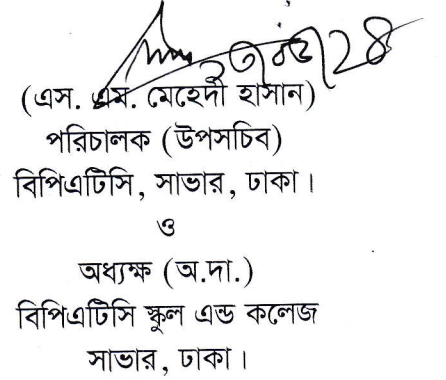 (এস. এম. মেহেদী হাসান)
পরিচালক (উপসচিব)
বিপিএটিসি, সাভার, ঢাকা।
ও
অধ্যক্ষ (অ.দা.)
বিপিএটিসি স্কুল এন্ড কলেজ
সাভার, ঢাকা।